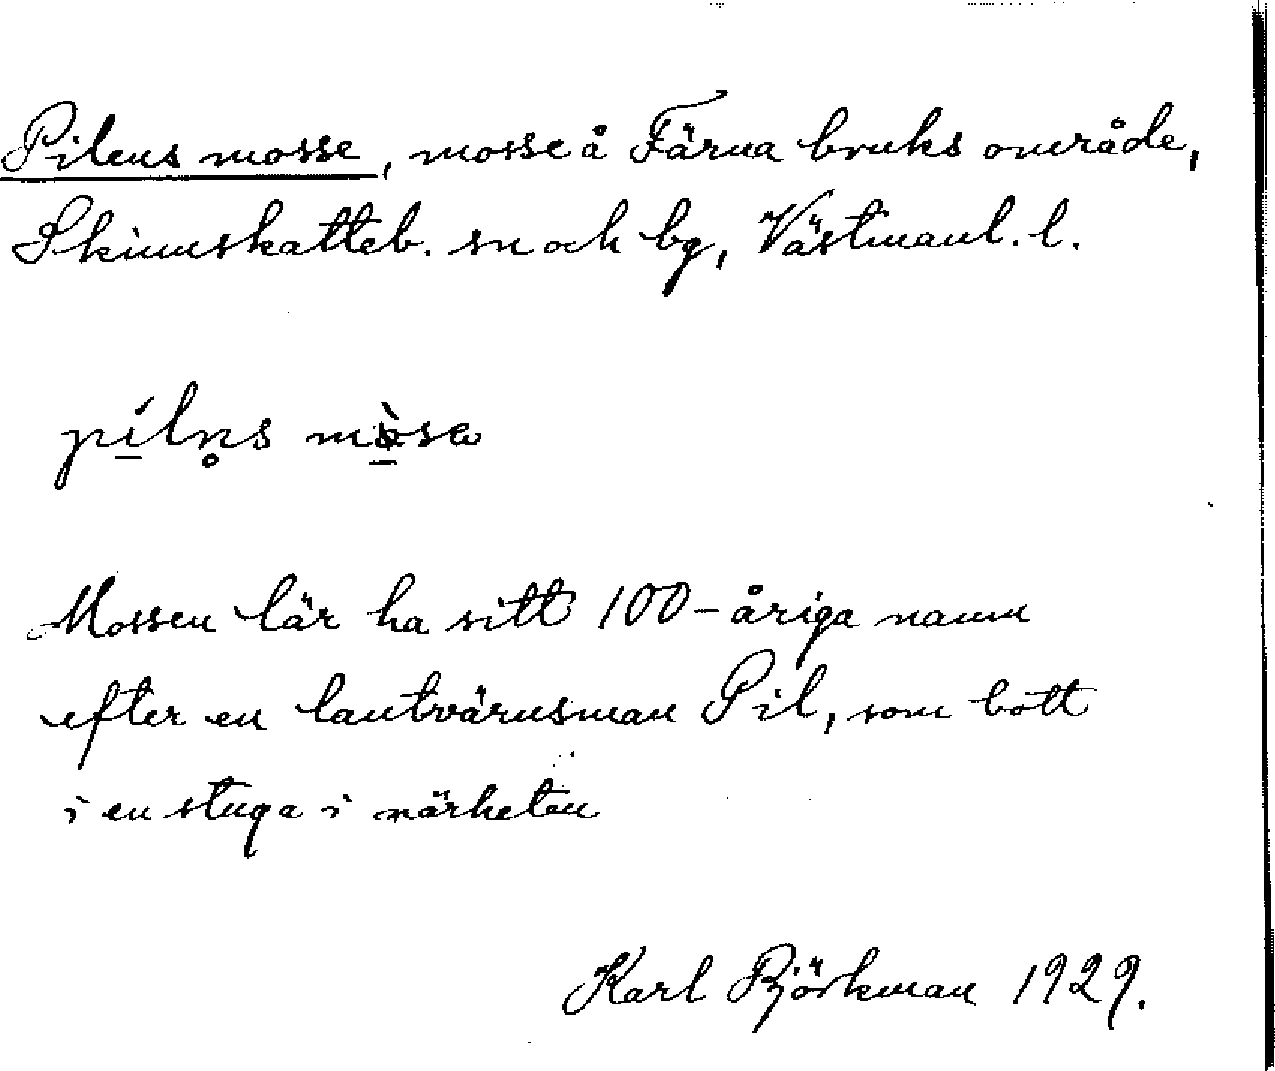 Pilens mosse, mosse å Färna bruks område,
Skinnskatteb. sn och bg, Västmanl. l.
píln̥s mòsa
Mossen lär ha sitt 100-åriga namn
efter en lantvärnsman Pil, som bott
i en stuga i närheten
Karl Björkman 1929.